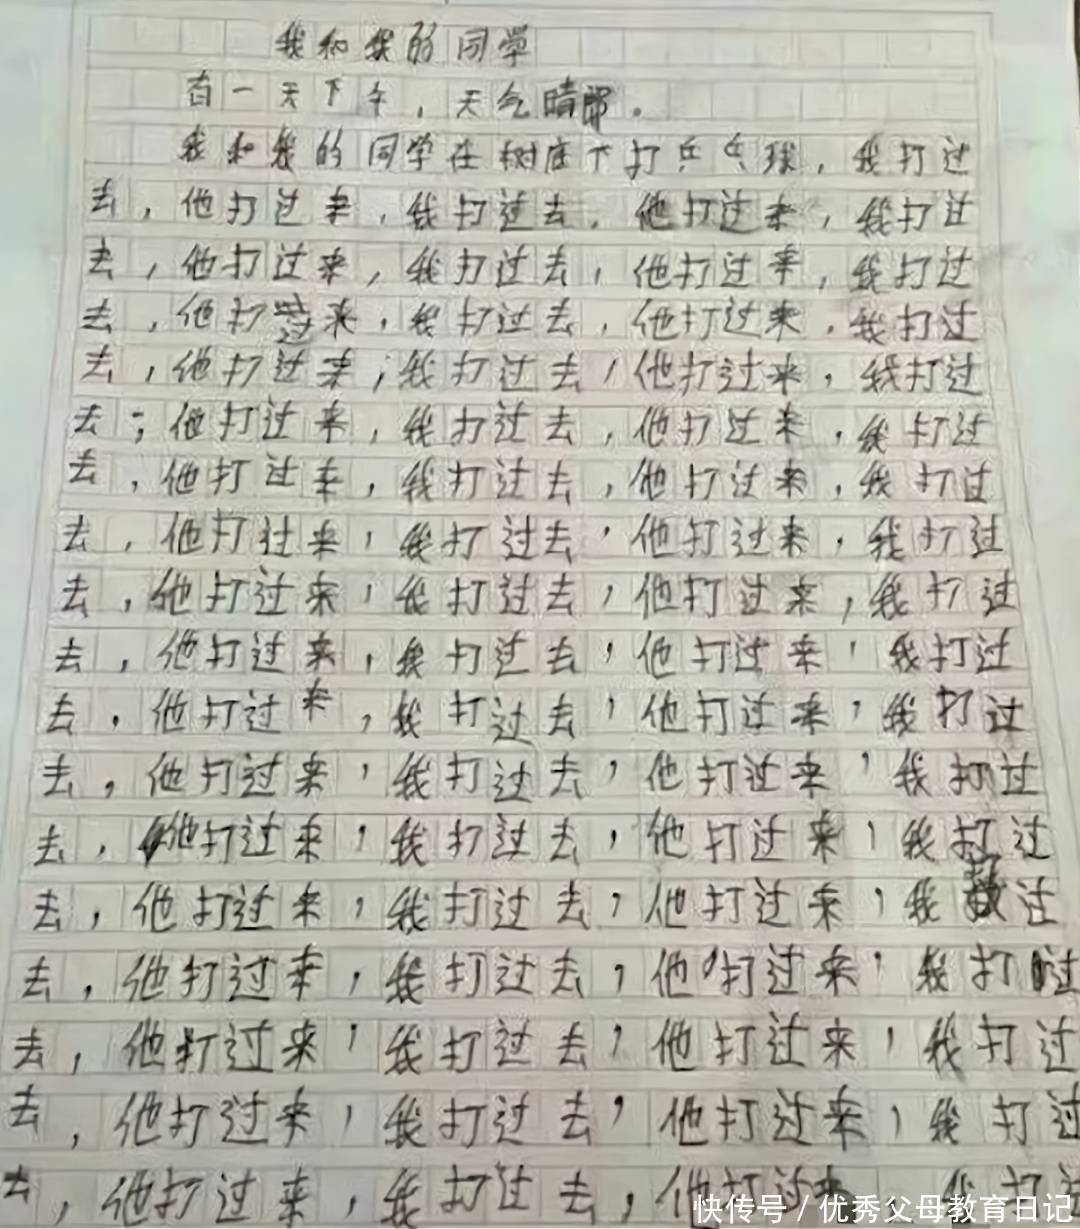 我和我的同学
有一天下午，天气晴朗。
我和我的同学在树底下打乒乓球，我打过
去，他打过来，我打过去，他打过来，我打过
去，他打过来，我打过去，他打过来，我打过
去，他打过来，我打过去，他打过来，我打过
去，他打过来；我打过去，他打过来，我打过
去；他打过来，我打过去，他打过来，我打过
去，他打过来，我打过去，他打过来，我打过
去，他打过来，我打过去，他打过来，我打过
去，他打过来，我打过去，他打过来，我打过
去，他打过来，我打过去，他打过来，我打过
去，他打过来，我打过去，他打过来，我打过
去，他打过来，我打过去，他打过来，我打过
去，他打过来，我打过去，他打过来，我打过
去，他打过来，我打过去，他打过来，我过
去，他打过来，我打过去，他打过来，我打过
去，他打过来，我打过去，他打过来，我打过
去，他打过来，我打过去，他打过来，我打过
去，他打过来，我打过去，他打过来 我打过
快传号/优秀父母教育日记